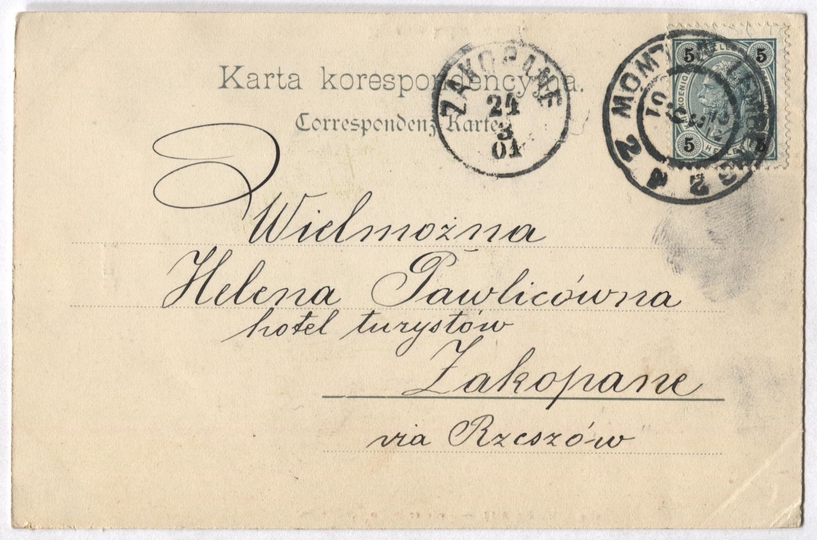 Karta korespondencyjna.
Correspondenz-Karte
ZAKOPANE
24
3
01
LWÓW 2 LEMBERG 2
5 5
5 5
Wielmożna
Helena Pawlicówna
hotel turystów
Zakopane
via Rzeszów